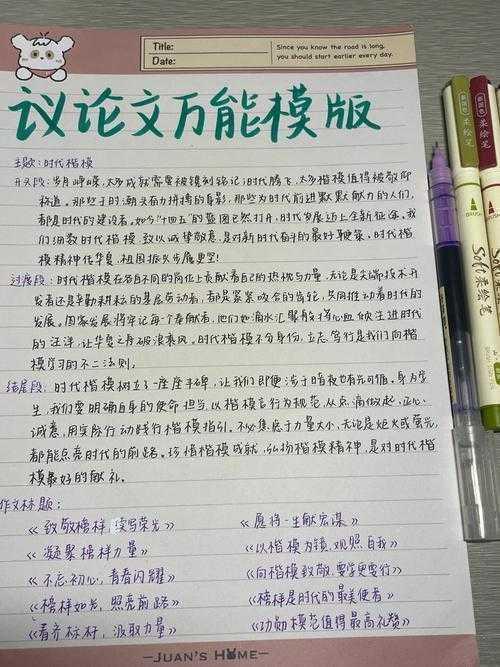 Title:
Date:
Since you know the road is long,
you should start earlier every day.
议论文万能模版
主题:时代楷模
开头段:岁月峥嵘,太多成就需要被镌刻铭记;时代腾飞,太多楷模值得被敬仰
称道。那些于时潮头奋力拼搏的身影,那些为时代前进默默献力的人们,
都是时代的建设者。如今"十四五"的蓝图已然打开,时代发展迈上全新征途。我
们细数时代楷模,致以诚挚敬意,是对新时代奋斗的最好鞭策。时代楷
模精神化华夏,祖国振兴步履更坚!
过渡段:时代楷模在各自不同的岗位上贡献着自己的热忱与力量,无论是尖端技术开
发者还是辛勤耕耘的基层劳动者,都是紧紧咬合的齿轮,共同推动着时代的
发展。国家发展将牢记每个奉献者,他们如滴水汇聚般将心血倾注进时代
的汪洋,让华夏之舟破浪乘风。时代楷模不分身份,立志笃行是我们向楷
模学习的不二法则。
结尾段:时代楷模树立了一座座丰碑,让我们即便涉于暗夜也有光可循。身为学
生,我们要明确自身的使命担当,以楷模言行为规范,从点滴做起,正心
诚意,用实际行动践行楷模指引。不必焦虑于力量大小,无论是炬火或萤光,
都能点亮时代的前路。珍惜楷模成就,弘扬楷模精神,是对时代楷
模最好的献礼。
作文标题:
《致敬榜样,续写荣光》
《愿将一生献宏谋》
《凝聚榜样力量》
《以楷模为镜,观照自我》
《不忘初心,青春闪耀》
《向楷模致敬,要学更要行》
《榜样如光,照亮前路》
《榜样是时代的最美使者》
《看齐标杆,汲取力量》
《功勋模范值得最高礼赞》
JUAN'S HOME
柔绘笔
柔绘笔
BRUSH
BRUSH
Soft柔绘笔